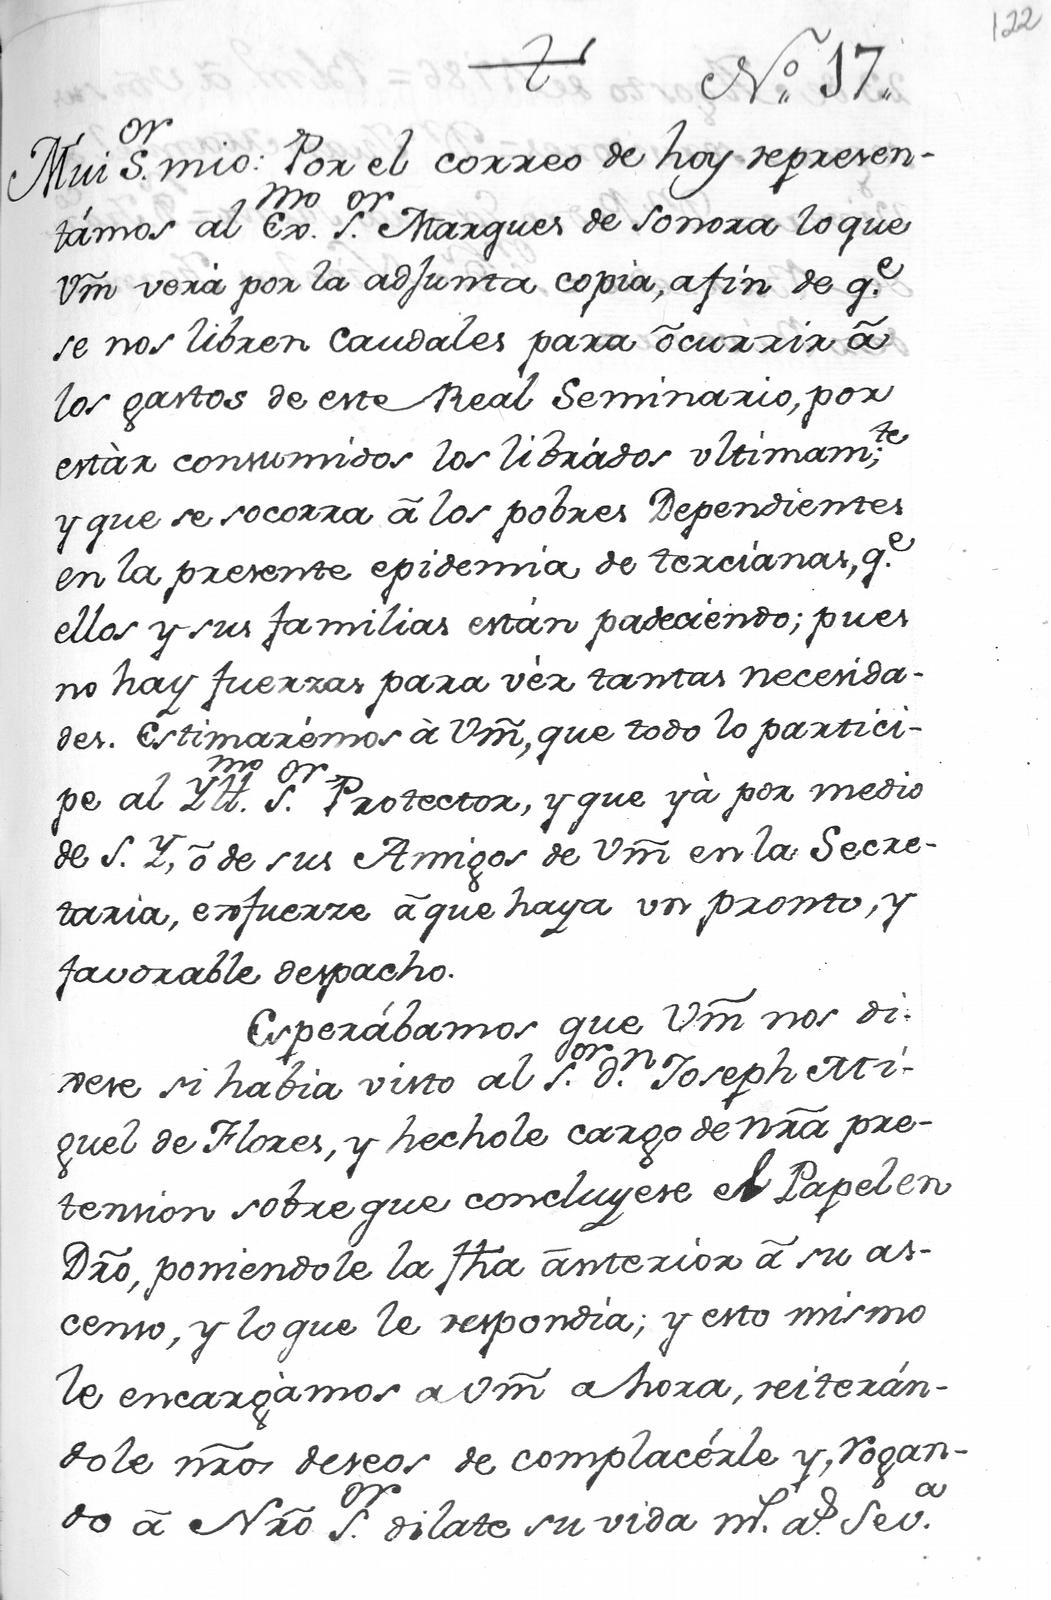 122
N.º 17.
Mui S.or mio: Por el correo de hoy represen-
támos al Ex.mo S.or Marques de Sonora lo que
Vm̃ verá por la adjunta copia, afin de q.e
se nos libren Caudales para õcurrir ã
los gastos de este Real Seminario, por
estàr consumidos los librádos ultimam.te;
y que se socorra ã los pobres Dependientes
en la presente epidemia de tercianas, q.e
ellos y sus familias están padeciendo; pues
no hay fuerzas para vér tantas necesida-
des. Estimarémos à Vm̃, que todo lo partici-
pe al Yll.mo S.or Protector, y que yà por medio
de S. Y, õ de sus Amigos de Vm̃ en la Secre-
taria, exfuerze ã que haya un pronto, y
favorable despacho.
Esperábamos que Vm̃ nos di-
xese si habia visto al S.or d.n Joseph Mi-
guel de Flores, y hechole cargo de nr̃a pre-
tension sobre que concluyese el Papel en
Dr̃o, poniendole la fh̃a ãnterior ã su as-
censo, y lo que le respondia; y esto mismo
le encargàmos a Vm̃ ahora, reiterán-
dole nr̃os deseos de complacérle y, rogan-
do ã Nr̃o S.or dilate su vida m.s a.s Sev.a